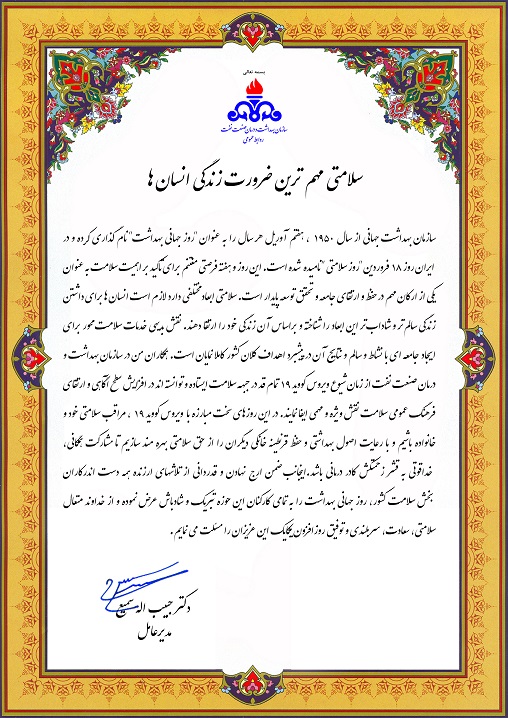 بسمه تعالی
سازمان بهداشت و درمان صنعت نفت
روابط عمومی
سلامتی مهم ترین ضرورت زندگی انسان ها
سازمان بهداشت جهانی از سال ۱۹۵۰ ، هفتم آوریل هر سال را به عنوان "روز جهانی بهداشت" نام گذاری کرده و در
ایران روز ۱۸ فروردین "روز سلامتی" نامیده شده است. این روز و هفته فرصتی مغتنم برای تأکید بر اهمیت سلامت به عنوان
یکی از ارکان مهم در حفظ و ارتقای جامعه و تحقق توسعه پایدار است. سلامتی ابعاد مختلفی دارد لازم است انسان ها برای داشتن
زندگی سالم تر و شاداب تر این ابعاد را شناخته و براساس آن زندگی خود را ارتقا دهند. نقش بدیهی خدمات سلامت محور برای
ایجاد جامعه ای با نشاط و سالم و نتایج آن در پیشبرد اهداف کلان کشور کاملا نمایان است. همکاران من در سازمان بهداشت و
درمان صنعت نفت از زمان شیوع ویروس کووید ۱۹ تمام قد در جبهه سلامت ایستاده و توانسته اند در افزایش سطح آگاهی و ارتقای
فرهنگ عمومی سلامت نقش ویژه و مهمی ایفا نمایند. در این روزهای سخت مبارزه با ویروس کووید ۱۹ ، مراقب سلامتی خود و
خانواده باشیم و با رعایت اصول بهداشتی و حفظ قرنطینه خانگی دیگران را از حق سلامتی بهره مند سازیم تا مشارکت همگانی،
خداقوتی به قشر زحمتکش کادر درمانی باشد.اینجانب ضمن ارج نهادن و قدردانی از تلاشهای ارزنده همه دست اندرکاران
بخش سلامت کشور، روز جهانی بهداشت را به تمامی کارکنان این حوزه تبریک و شادباش عرض نموده و از خداوند متعال
سلامتی، سعادت، سربلندی و توفیق روز افزون یکایک این عزیزان را مسئلت می نمایم.
دکتر حبیب اله سمیع
مدیرعامل